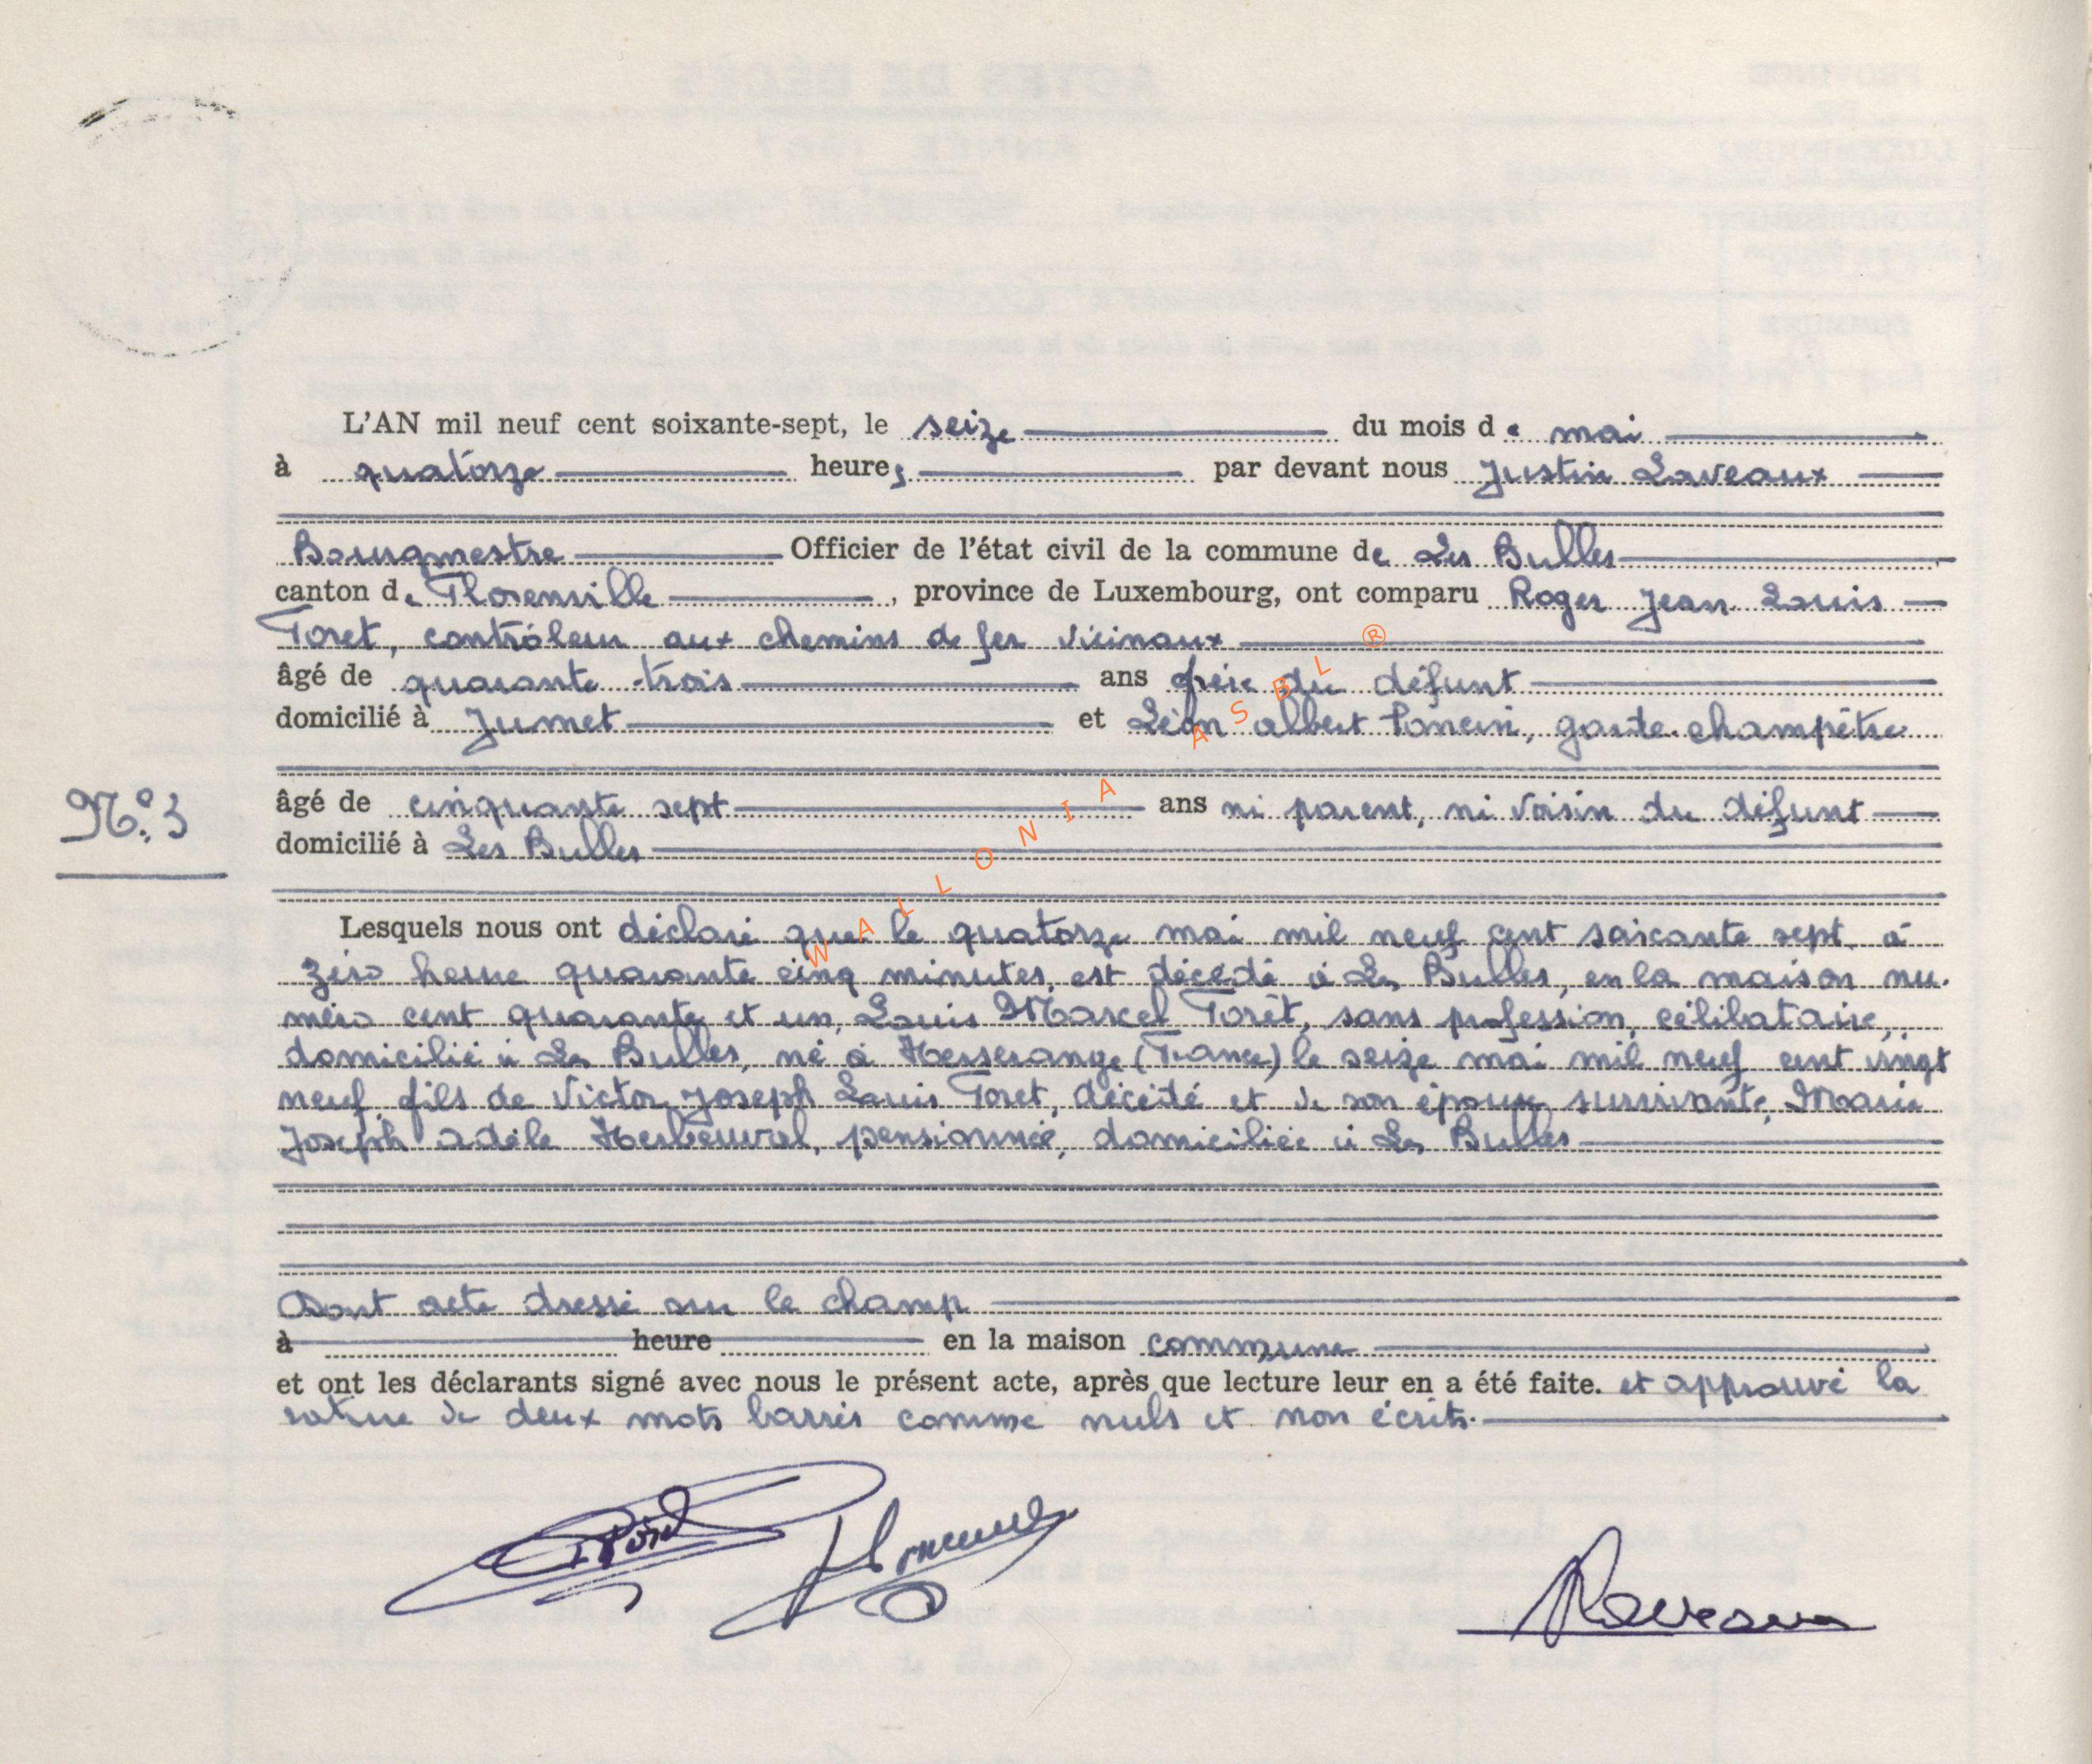 L'AN mil neuf cent soixante-sept, le seize du mois de mai
à quatorze heures par devant nous Justin Laveaux
Bourgmestre Officier de l'état civil de la commune de Les Bulles
canton de Florenville, province de Luxembourg, ont comparu Roger Jean Louis
Toret, contrôleur aux chemins de fer vicinaux
âgé de quarante-trois ans frère du défunt
domicilié à Jumet et Léon Albert Poncin, garde-champêtre
N° 3
âgé de cinquante sept ans ni parent, ni voisin du défunt
domicilié à Les Bulles
Lesquels nous ont déclaré que le quatorze mai mil neuf cent soixante sept à
zéro heure quarante cinq minutes, est décédé à Les Bulles, en la maison nu-
méro cent quarante et un, Louis Marcel Toret, sans profession, célibataire,
domicilié à Les Bulles, né à Herserange (France) le seize mai mil neuf cent vingt
neuf, fils de Victor Joseph Louis Toret, décédé et de son épouse survivante, Marie
Joseph Adèle Herbeuval, pensionnée, domiciliée à Les Bulles
Dont acte dressé sur le champ
à heure en la maison commune
et ont les déclarants signé avec nous le présent acte, après que lecture leur en a été faite. et approuvé la
rature de deux mots barrés comme nuls et non écrits.
WALLONIA ASBL ®